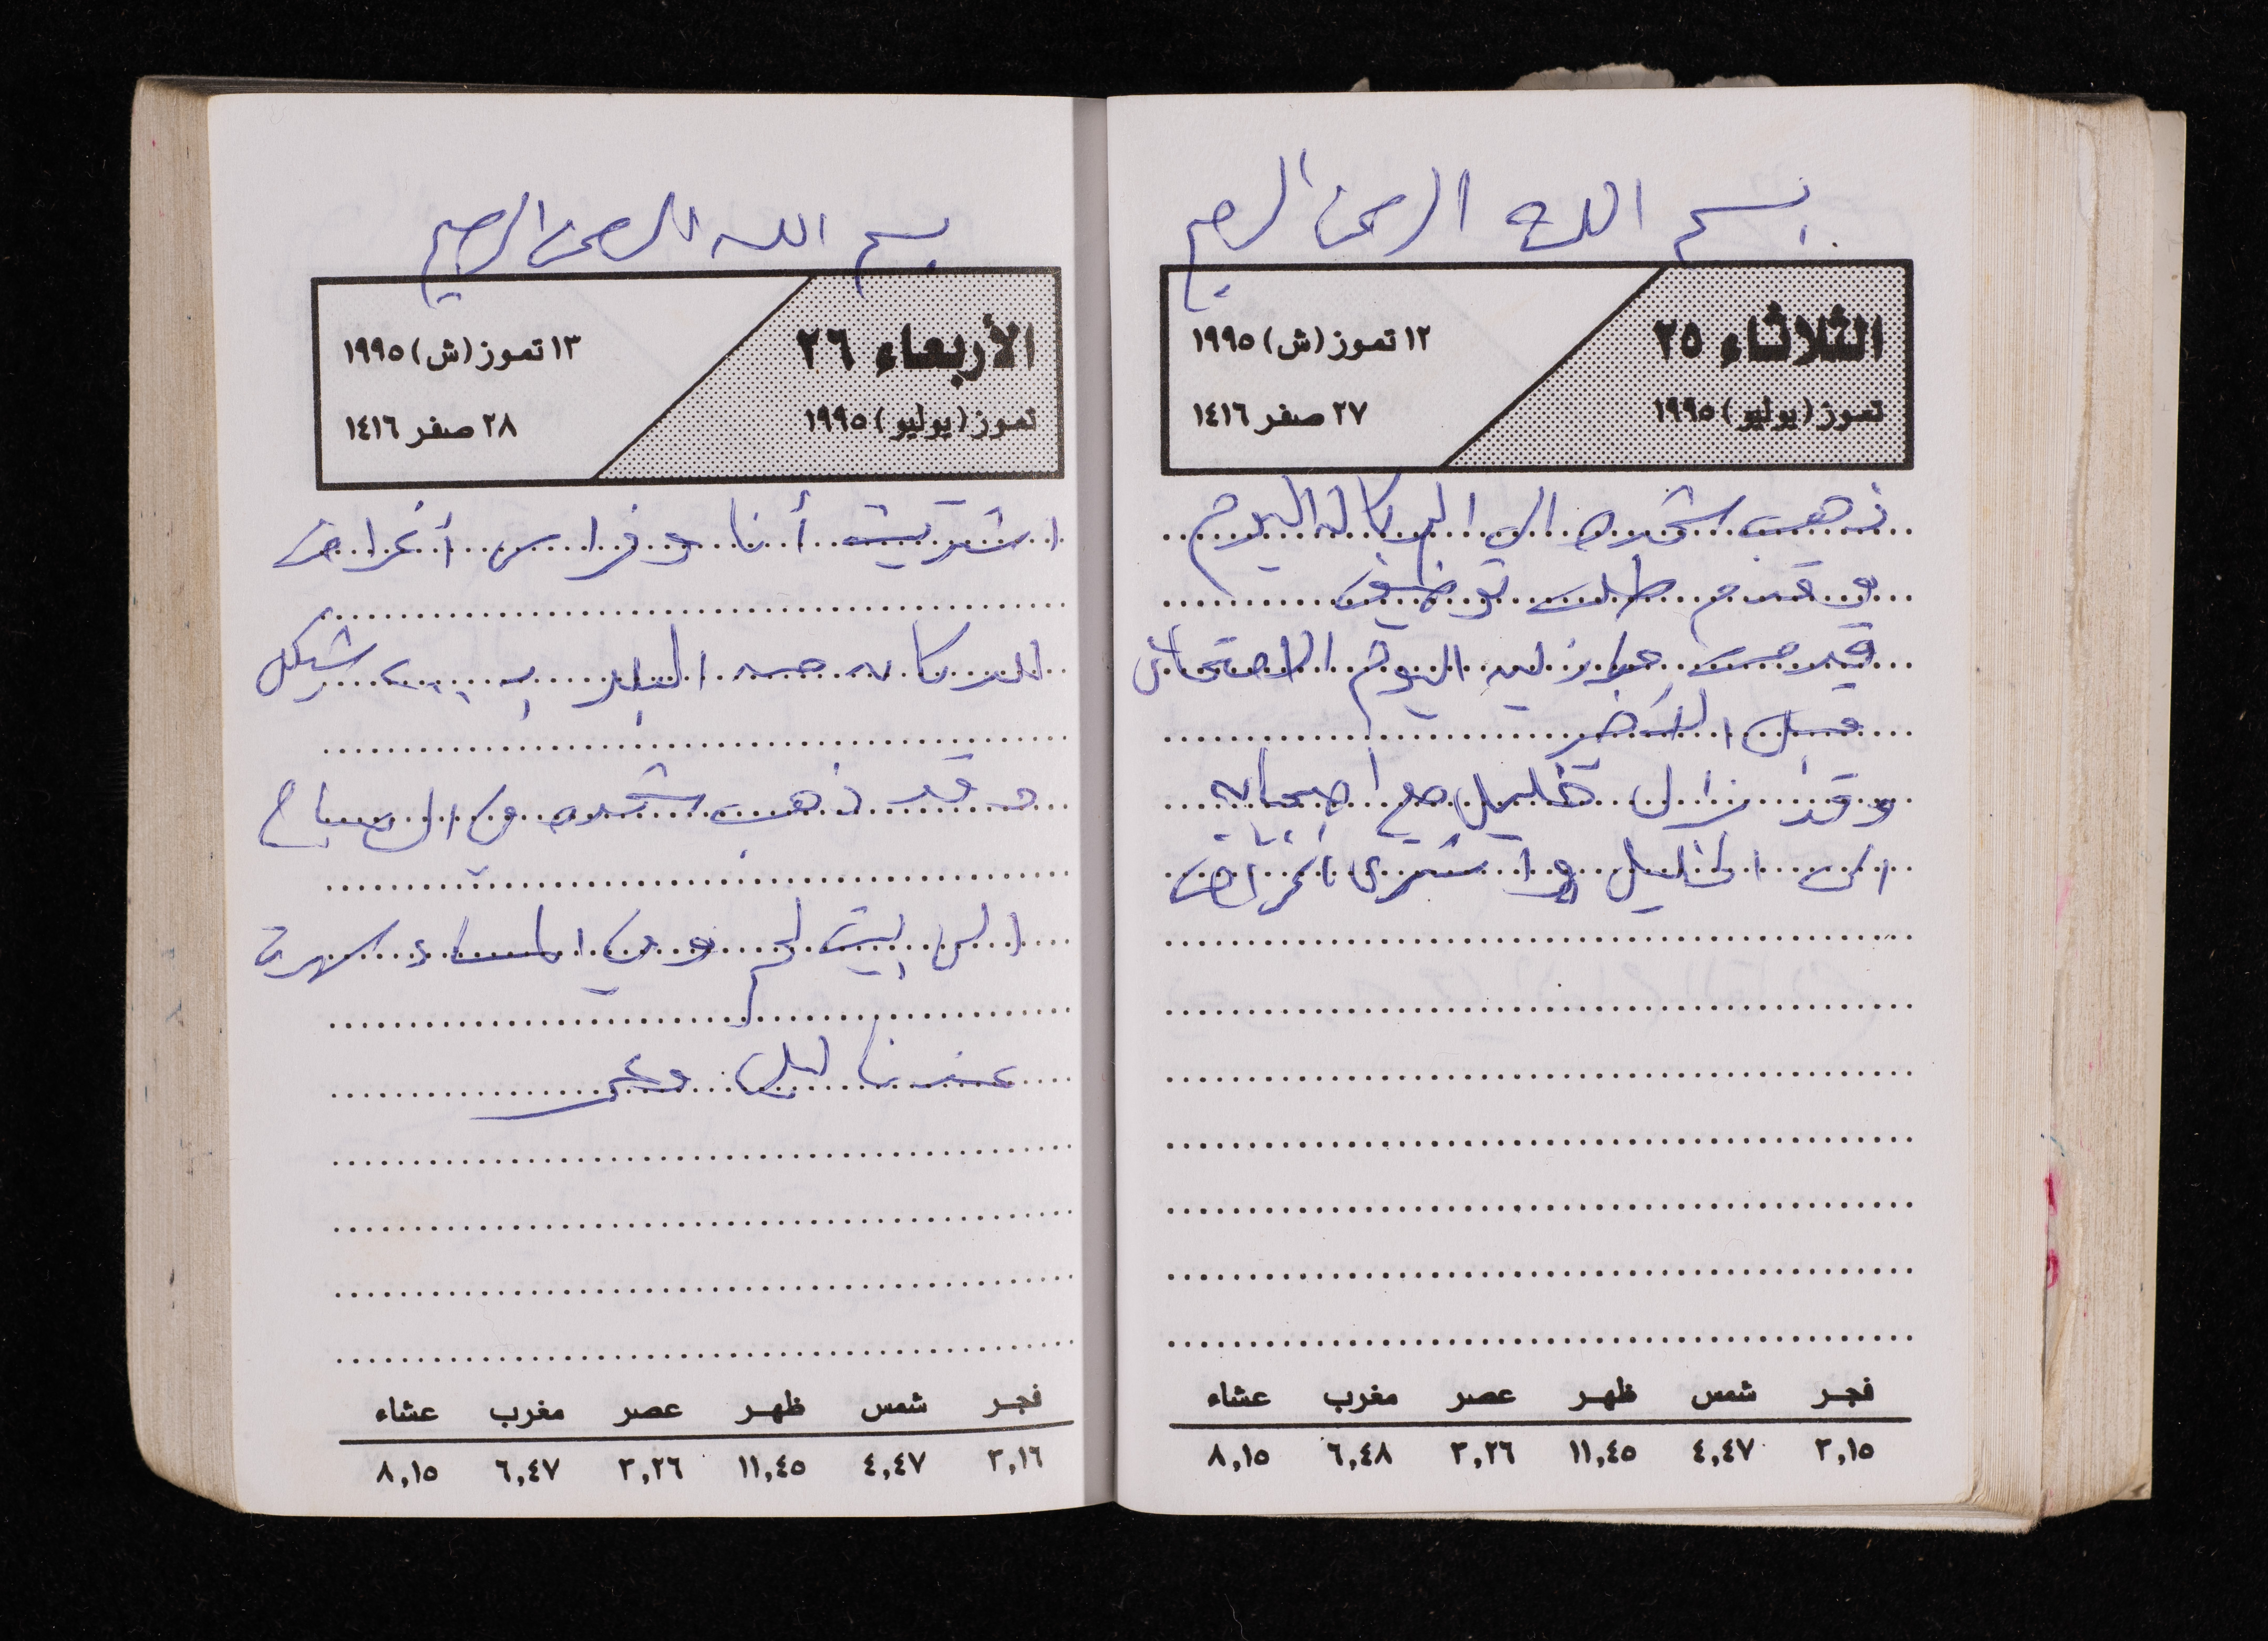 بسم الله الرحمن الرحيم
الثلاثاء ٢٥
تموز (يوليو) ١٩٩٥
١٢ تموز (ش) ١٩٩٥
٢٧ صفر ١٤١٦
ذهب شحده الى الوكالة اليوم
و قدم طلب توظيف
قدمت اليوم الامتحان
قبل الاخير
وقد نزل خليل مع اصحابه
الى الخليل واشترى اغراض
فجر شمس ظهر عصر مغرب عشاء
٣,١٥ ٤,٤٧ ١١,٤٥ ٣,٢٦ ٦,٤٨ ٨,١٥
بسم الله الرحمن الرحيم
الأربعاء ٢٦
تموز (يوليو) ١٩٩٥
١٣ تموز (ش) ١٩٩٥
٢٨ صفر ١٤١٦
اشتريت أنا وفراس أغراض
للدكانه من البلد ب ٢٠٠ شيكل
و قد ذهب شحده في الصباح
الى بيت لحم وفي المساء سهرة
عندنا ليلى
فجر شمس ظهر عصر مغرب عشاء
٣,١٦ ٤,٤٧ ١١,٤٥ ٣,٢٦ ٦,٤٧ ٨,١٥